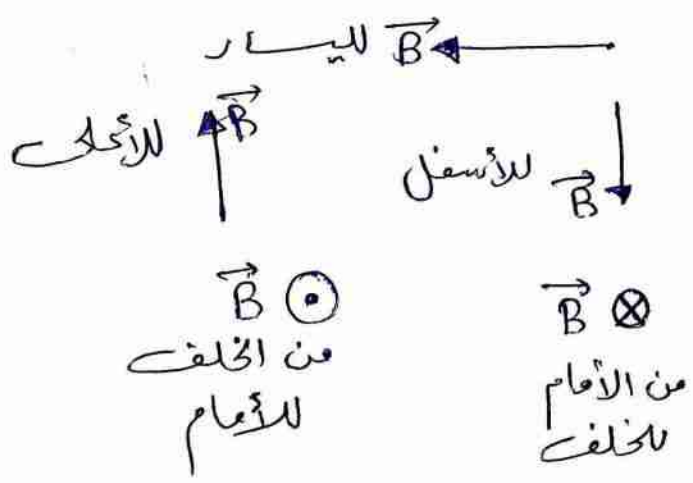 لليسار B
للأعلى B
للأسفل B
B
من الخلف
للأمام
B
من الأمام
للخلف